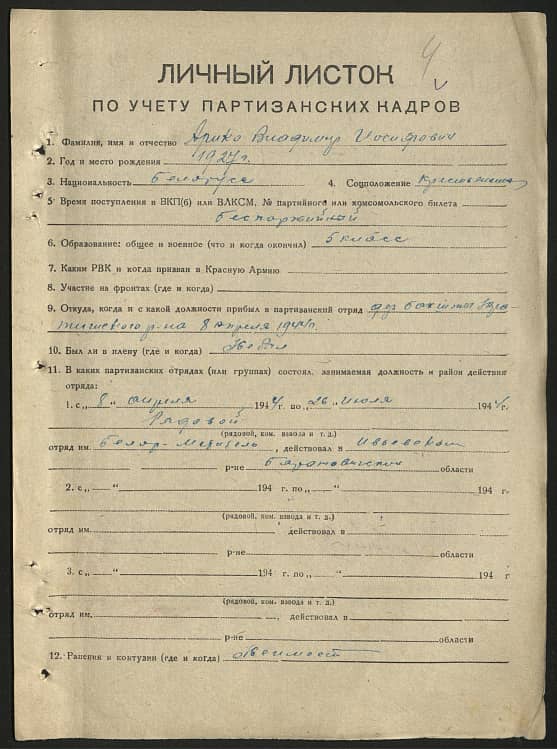 4
ЛИЧНЫЙ ЛИСТОК
ПО УЧЕТУ ПАРТИЗАНСКИХ КАДРОВ
1. Фамилия, имя и отчество Арико Владимир Иосифович
2. Год и место рождения 1927 г.
3. Национальность Белорус 4. Соцположение
5. Время поступления в ВКП(б) или ВЛКСМ, № партийного или комсомольского билета
беспартийный
6. Образование: общее и военное (что и когда окончил) 5 класс
7. Каким РВК и когда призван в Красную Армию
8. Участие на фронтах (где и когда)
9. Откуда, когда и с какой должности прибыл в партизанский отряд дер Бакшты Юра
тишевого р-на 8 апреля 1944 г.
10. Был ли в плену (где и когда) Не был
11. В каких партизанских отрядах (или группах) состоял, занимаемая должность и район действия
отряда:
1. с „8“ апреля 1944 г. по „26“ июля 1944 г.
Рядовой
(рядовой, ком. взвода и т. д.)
отряд им. , действовал в Ивьевском
р-не Барановичской области
2. с „ “ 194 г. по „ “ 194 г.
(рядовой, ком. взвода и т. д.)
отряд им. действовал в
р-не области
3. с „ “ 194 г. по „ “ 194 г
(рядовой, ком. взвода и т. д.)
отряд им. , действовал в
р-не области
12. Ранения и контузии (где и когда)